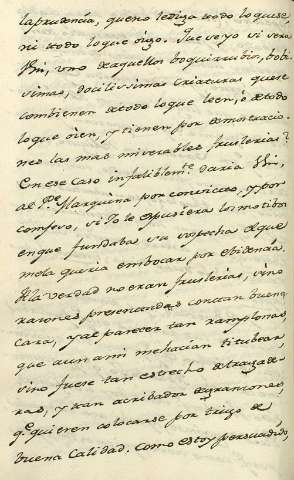 la prudencia, que no le diga todo lo que se,
ni todo lo que oigo. Fue yo si vera
Vm, uno de aquellos boquirrubios, bobi
simos, docilisimas criaturas que se
combienen de todo lo que leen, ó de todo
lo que oien, y tienen por demostracio-
nes las mas miserables fruslerias?
En ese caso infaliblemte. daria Vm,
al Pe. Marquina por convicto, y por
confeso, si Yo le expusiera los motibos
en que fundaba su sospecha el que
me la queria embocar por ebidencia.
A la verdad no eran fruslerias, sino
razones presentadas con tan buena
cara, y al parecer tan ramplonas,
que aun a mi me hacian titubear,
sino fuese tan estrecho de tragade-
ras, y tan acribador de granzones,
qe. quieren colocarse por trigo de
buena Calidad. Como estoy persuadido,